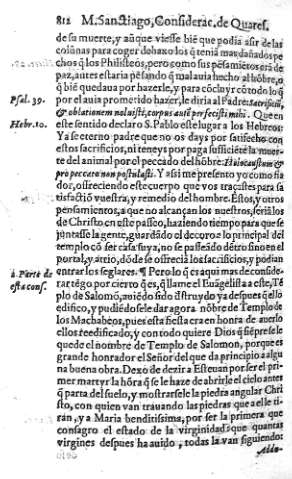 812 M. Sanctiago, Considerac. de Quares.
de su muerte, y aũque viesse biẽ que podia asir de las
colũnas para coger debaxo los q̃ teniã mas dañados pe
chos q̃ los Philisteos, pero como sus pẽsamientos erã de
paz, antes estaria pẽsando q̃ mal auia hecho al hõbre, o
q̃ biẽ quedaua por hazerle, y para cõcluyr cõ todo lo q̃
Psal. 39. por el auia prometido hazer, le diria al Padre: Sacrificiũ,
& oblationem noluisti, corpus autẽ perfecisti mihi. Que en
Hebr. 10. este sentido declaro S. Pablo este lugar a los Hebreos:
Ya se eterno padre que no os days por satisfecho con
estos sacrificios, ni teneys por paga sufficiẽte la muer
te del animal por el peccado del hõbre: Holocaustum &
pro peccato non postulasti. Y assi me presento yo como fia
dor, ofreciendo este cuerpo que vos traçastes para sa
tisfactiõ vuestra, y remedio del hombre. Estos, y otros
pensamientos, a que no alcançan los nuestros, seriã los
de Christo en este passeo, haziendo tiempo para que se
juntasse la gente, guardãdo el decoro a lo principal del
templo cõ ser casa suya, no se passeãdo dẽtro sino en el
portal, y atrio, dõde se ofreciã los sacrificios, y podian
à Parte de entrar los seglares. ¶ Pero lo q̃ es aqui mas de conside-
esta cons. rar tẽgo por cierto q̃ es, q̃ llame el Euãgelista a este, Tẽ
plo de Salomõ, auiẽdo sido dstruydo ya despues q̃ el lo
edifico, y pudiẽdosele dar agora nõbre de Templo de
los Machabeos, pues esta fiesta era en honra de auerlo
ellos reedificado, y con todo quiere Dios q̃ siẽpre se le
quede el nombre de Templo de Salomon, porque es
grande honrador el Señor del que da principio a algu
na buena obra. Dexo de dezir a Esteuan por ser el pri-
mer martyr la hõra q̃ se le haze de abrirle el cielo antes
q̃ parta del suelo, y mostrarsele la piedra angular Chri
sto, con quien van trauando las piedras que a el le ti-
rãn, y a Maria benditissima, por ser la primera que
consagro el estado de la virginidad que quantas
virgines despues ha auido, todas la van siguiendo: